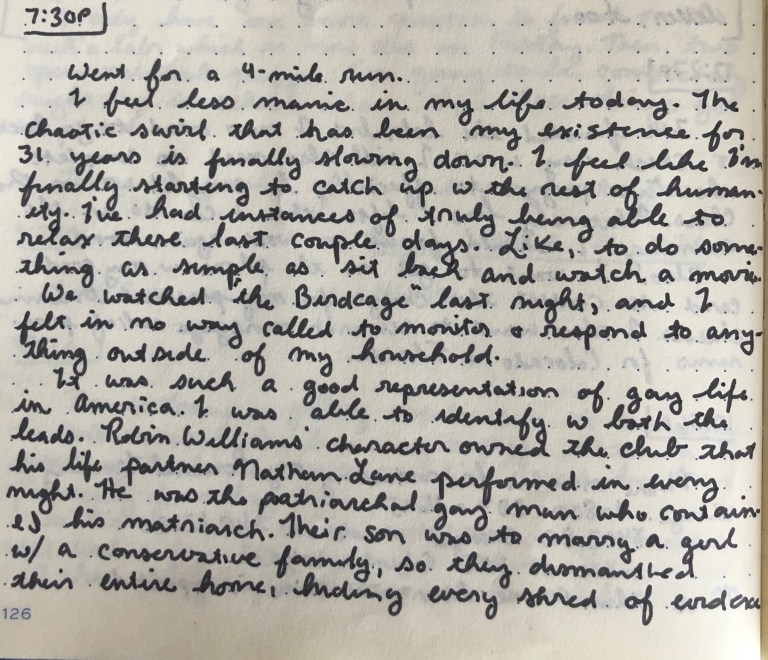 7:30P
Went for a 4-mile run.
I feel less manic in my life today. The
chaotic swirl that has been my existence for
31 years is finally slowing down. I feel like I'm
finally starting to catch up w the rest of human-
ity. I've had instances of truly being able to
relax these last couple days. Like, to do some-
thing as simple as sit back and watch a movie.
We watched "the Birdcage" last night, and I
felt in no way called to monitor or respond to any-
thing outside of my household.
It was such a good representation of gay life
in America. I was able to identify w both the
leads. Robin Williams' character owned the club that
his life partner Nathan Lane performed in every
night. He was the patriarchal gay man who contain-
ed his matriarch. Their son was to marry a girl
w/ a conservative family, so they dismantled
their entire home, hiding every shred of evidence
126